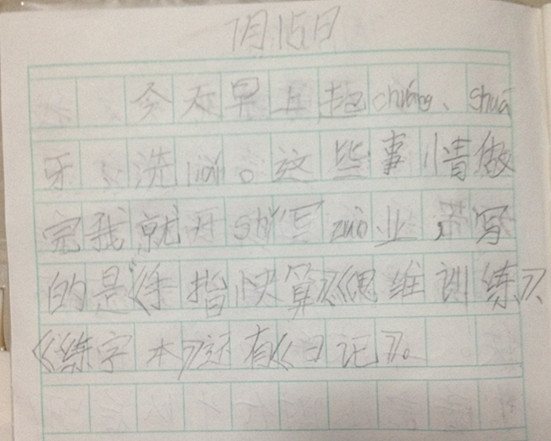 1月15日
今天早上起chuáng、shuā
牙、洗liǎn。这些事情做
完我就开shǐ写zuò业,写
的是《手指快算》《思维训练》、
《练字本》还有《日记》。